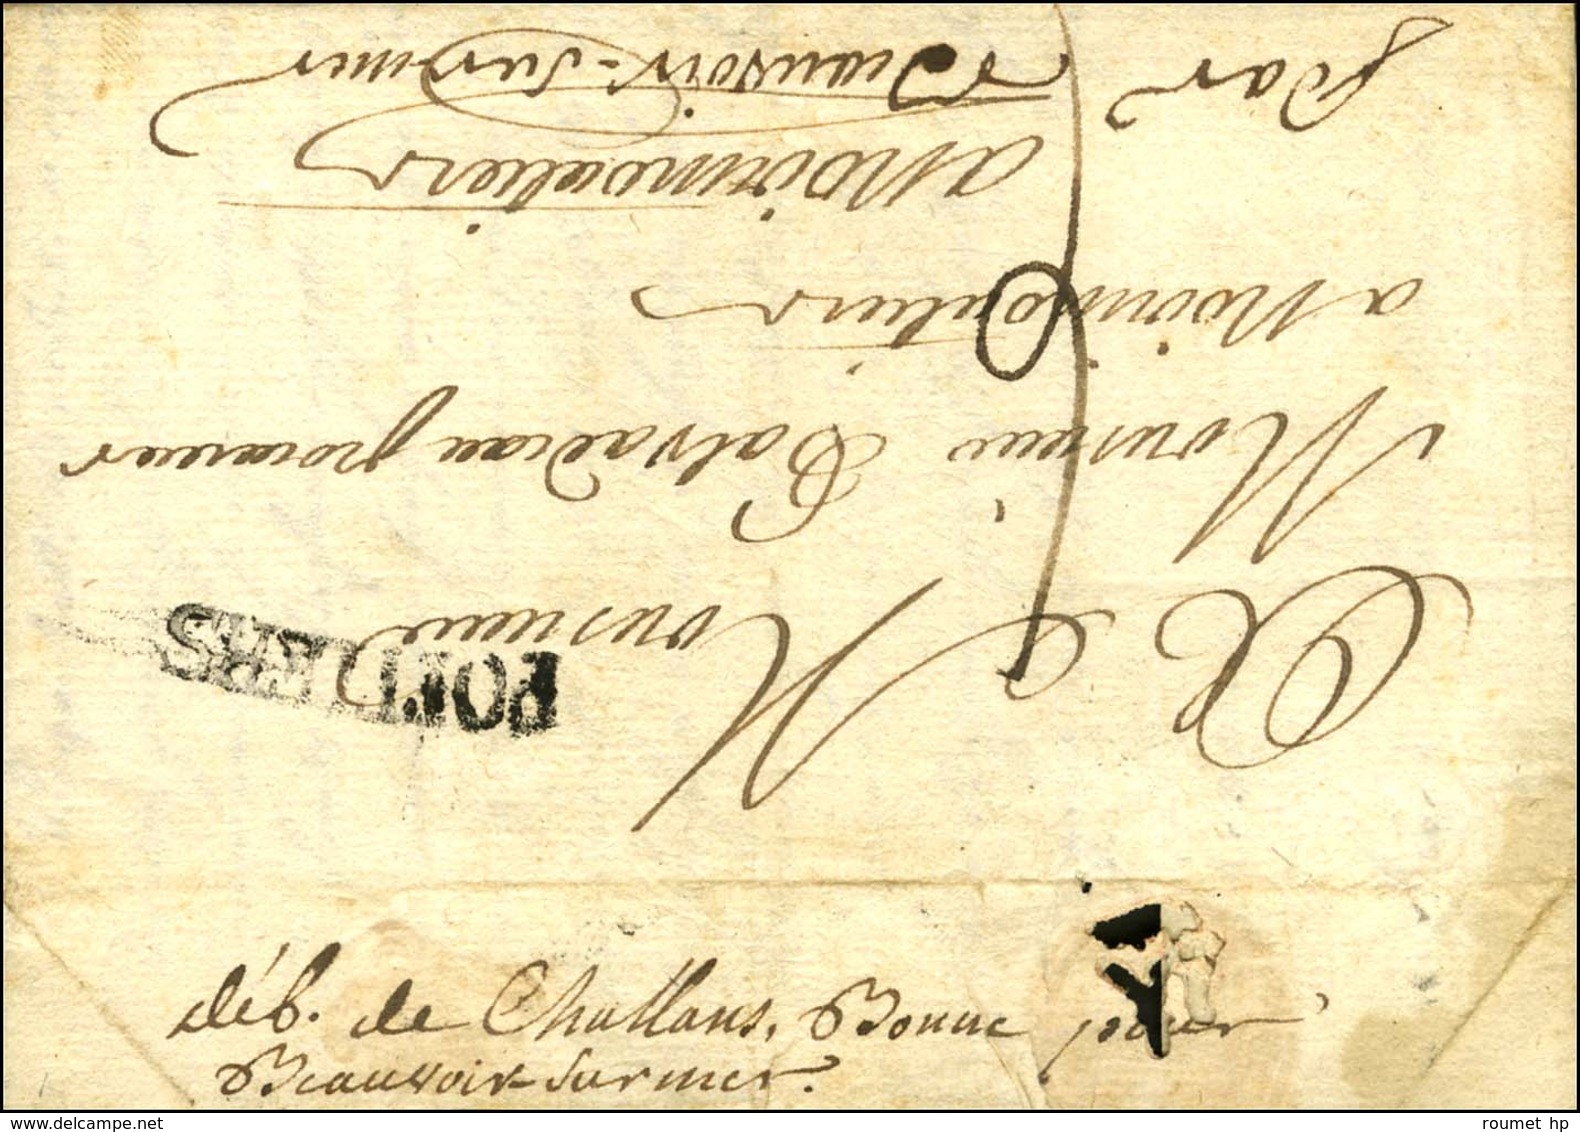 A
Monsieur
Monsieur
a Noirmoutiers
a Noirmoutiers
par Beauvoir-Sur-mer
POITIERS
déb. de Challans, Bonne pour
Beauvoir-sur mer.
www.delcampe.net
roumet hp